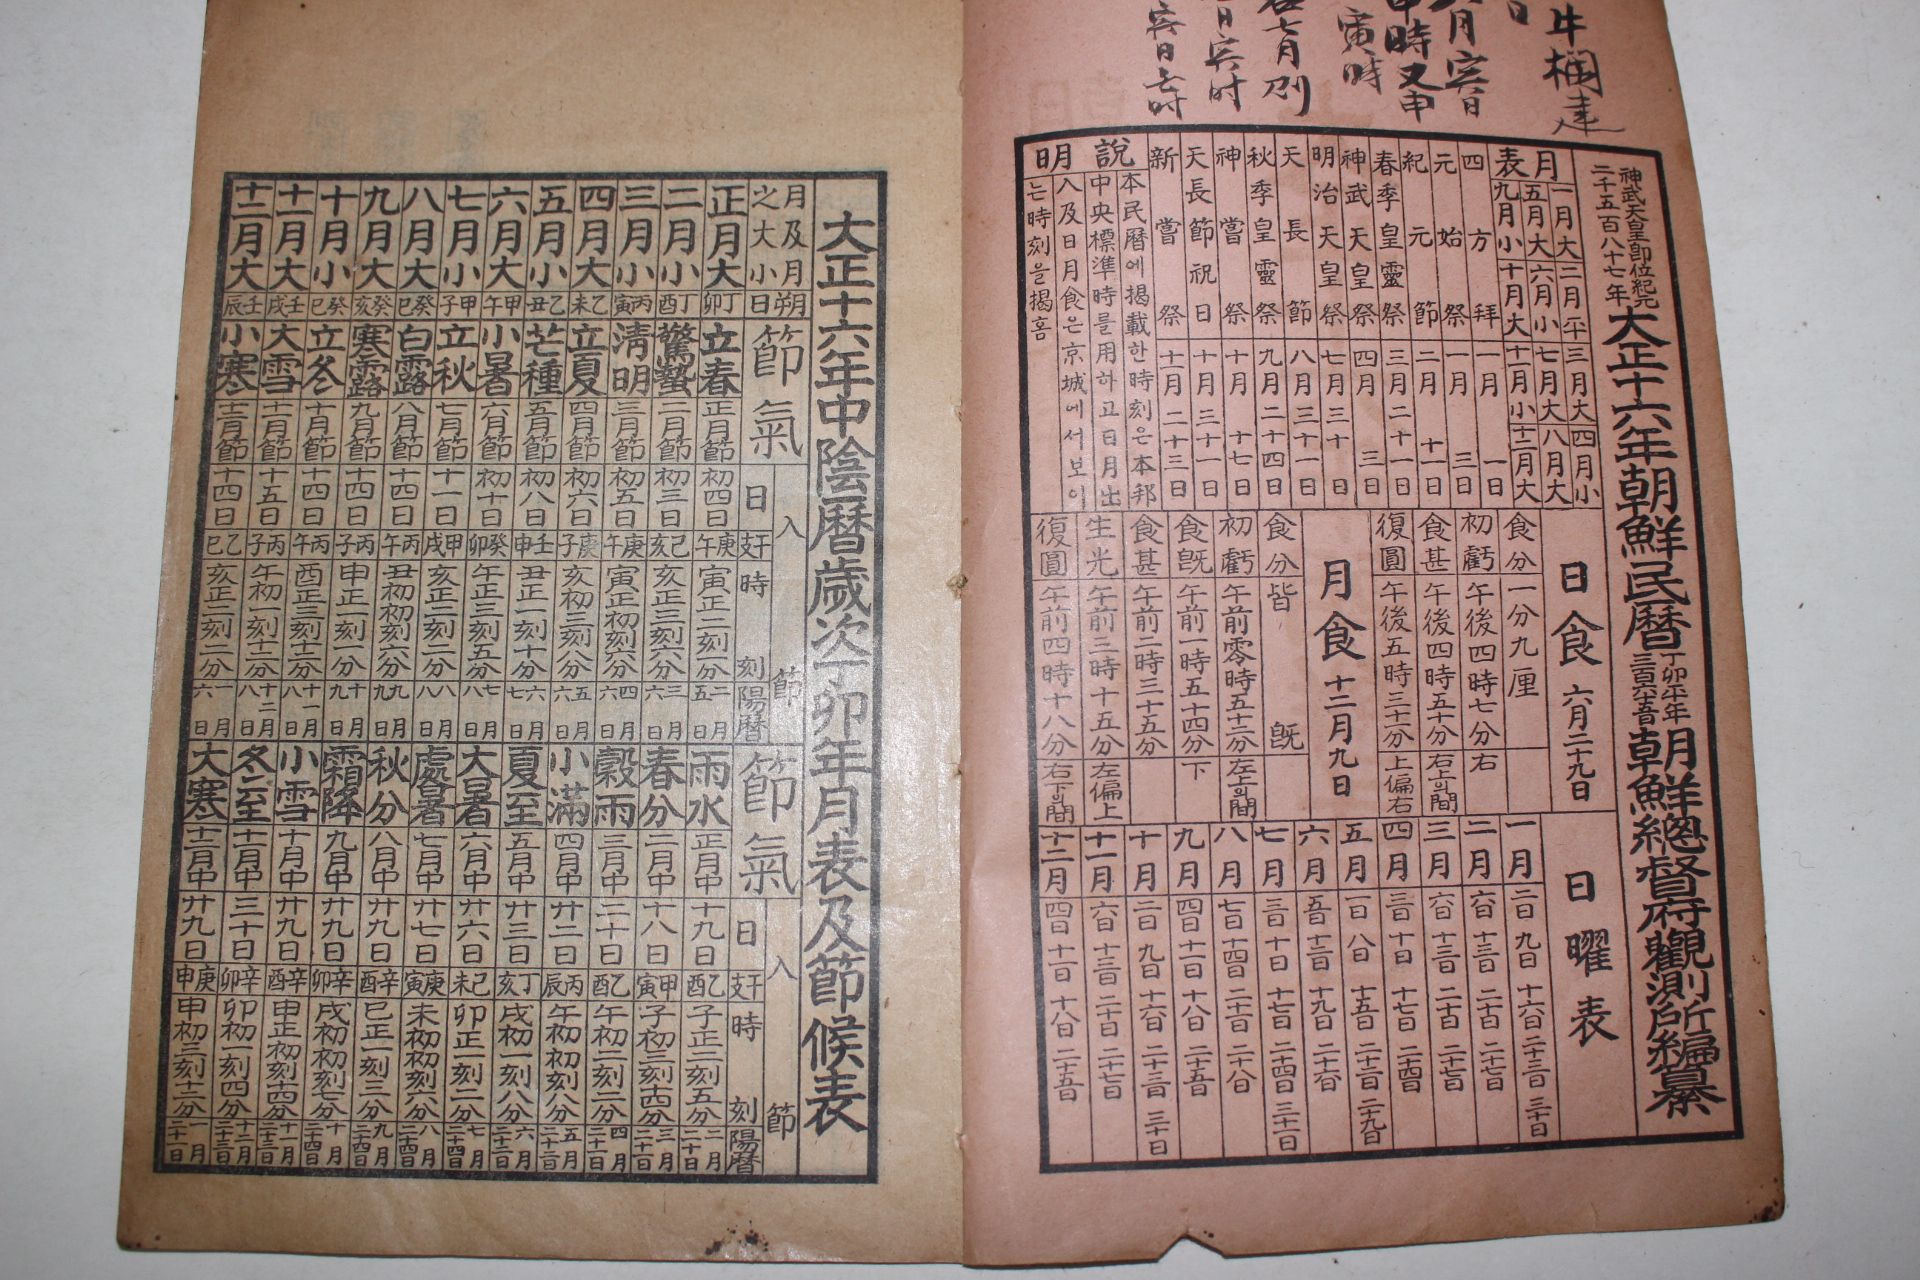 牛欄造
日
月寅日
申時又申
寅時
七月則
日寅时
寅日七时
神武天皇卽位紀元
二千五百八十七年
大正十六年朝鮮民曆
丁卯平年
三百六十五日
朝鮮總督府觀測所編纂
月表
一月大 二月平 三月大 四月小
五月大 六月小 七月大 八月大
九月小 十月大 十一月小 十二月大
四方拜 一月一日
元始祭 一月三日
紀元節 二月十一日
春季皇靈祭 三月二十一日
神武天皇祭 四月三日
明治天皇祭 七月三十日
天長節 八月三十一日
秋季皇靈祭 九月二十四日
神嘗祭 十月十七日
天長節祝日 十月三十一日
新嘗祭 十一月二十三日
說明
本民曆에揭載한時刻은本邦
中央標準時를用하고日月出
入及日月食은京城에서보이
는時刻을揭홈
日食 六月二十九日
食分 一分九厘
初虧 午後四時七分 右
食甚 午後四時五十分 右上의間
復圓 午後五時三十一分 上偏右
月食 十二月九日
食分 皆旣
初虧 午前零時五十二分 左上의間
食旣 午前一時五十四分 下
食甚 午前二時三十五分
生光 午前三時十五分 左偏上
復圓 午前四時十八分 右下의間
日曜表
一月 二日 九日 十六日 二十三日 三十日
二月 六日 十三日 二十日 二十七日
三月 六日 十三日 二十日 二十七日
四月 三日 十日 十七日 二十四日
五月 一日 八日 十五日 二十二日 二十九日
六月 五日 十二日 十九日 二十六日
七月 三日 十日 十七日 二十四日 三十一日
八月 七日 十四日 二十一日 二十八日
九月 四日 十一日 十八日 二十五日
十月 二日 九日 十六日 二十三日 三十日
十一月 六日 十三日 二十日 二十七日
十二月 四日 十一日 十八日 二十五日
大正十六年中陰曆歲次丁卯年月表及節候表
月及月之大小 朔日 節氣 入節 日 干支 時刻 陽曆 節氣 入節 日 干支 時刻 陽曆
正月大 丁卯 立春 正月節 初四日 庚午 寅正二刻一分 二月五日 雨水 正月中 十九日 乙酉 子正二刻五分 二月二十日
二月小 丁酉 驚蟄 二月節 初三日 己亥 亥正三刻六分 三月六日 春分 二月中 十八日 甲寅 子初三刻十四分 三月二十一日
三月小 丙寅 淸明 三月節 初五日 庚午 寅正初刻六分 四月六日 穀雨 三月中 二十日 乙酉 午初二刻二分 四月二十一日
四月大 乙未 立夏 四月節 初六日 庚子 亥初三刻八分 五月六日 小滿 四月中 廿二日 丙辰 午初初刻八分 五月二十二日
五月小 乙丑 芒種 五月節 初八日 壬申 丑正一刻十分 六月七日 夏至 五月中 廿三日 丁亥 戌初一刻八分 六月二十二日
六月大 甲午 小暑 六月節 初十日 癸卯 午正三刻五分 七月八日 大暑 六月中 廿六日 己未 卯正一刻二分 七月二十四日
七月小 甲子 立秋 七月節 十一日 甲戌 亥正二刻二分 八月八日 處暑 七月中 廿七日 庚寅 未初初刻六分 八月二十四日
八月大 癸巳 白露 八月節 十四日 丙午 丑初初刻六分 九月九日 秋分 八月中 廿九日 辛酉 巳正一刻三分 九月二十四日
九月大 癸亥 寒露 九月節 十四日 丙子 申正一刻一分 十月九日 霜降 九月中 廿九日 辛卯 戌初初刻七分 十月二十四日
十月小 癸巳 立冬 十月節 十四日 丙午 酉正三刻十二分 十一月八日 小雪 十月中 廿九日 辛酉 申正初刻十四分 十一月二十三日
十一月大 壬戌 大雪 十一月節 十五日 丙子 午初一刻十二分 十二月八日 冬至 十一月中 三十日 辛卯 卯初一刻四分 十二月二十三日
十二月大 壬辰 小寒 十二月節 十四日 乙巳 亥正二刻二分 一月六日 大寒 十二月中 廿九日 庚申 申初三刻十二分 一月二十一日